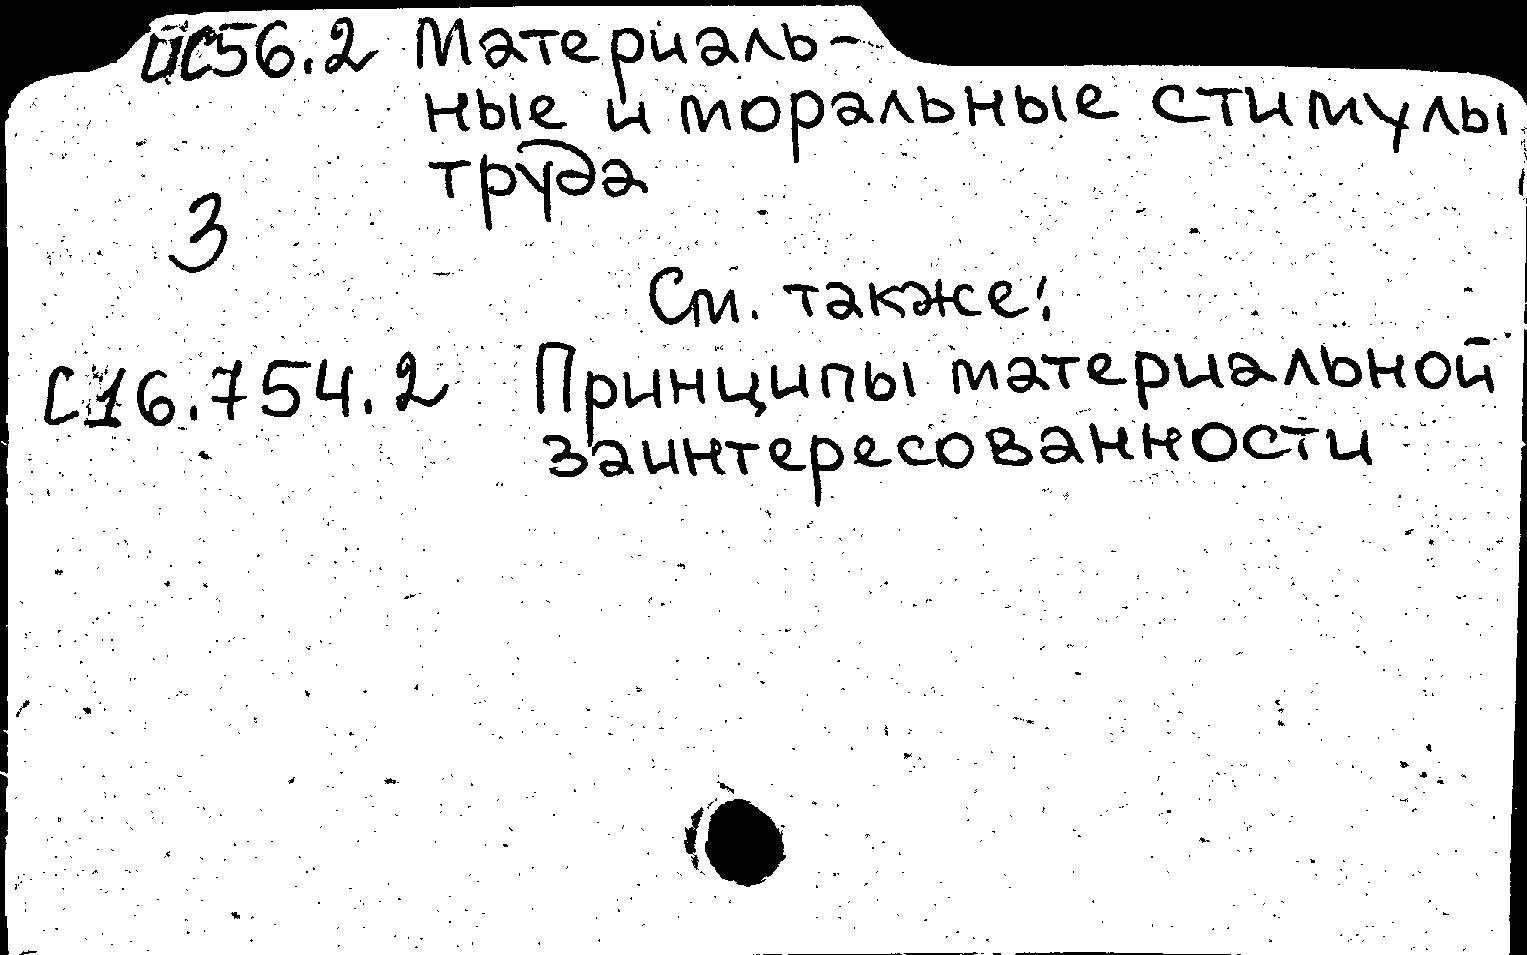 ЦС56.2 Материаль-
ные и моральные стимулы
труда
3
См. также:
С16.754.2 Принципы материальной
заинтересованности